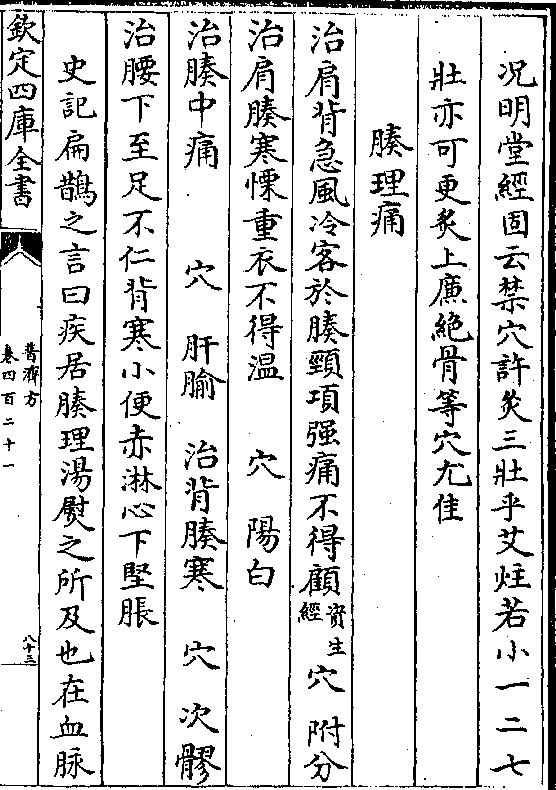 况明堂經固云禁穴許炙三壯乎艾炷若小一二七
壯亦可更炙上廉絶骨等穴尤佳
腠理痛
治肩背急風冷客於腠頸項强痛不得顧資生經穴附分
治肩腠寒慄重衣不得温　穴　陽白
治腠中痛　穴　肝腧　治背腠寒　穴　次髎
治腰下至足不仁背寒小便赤淋心下堅脹
史記扁鵲之言曰疾居腠理湯熨之所及也在血脉
欽定四庫全書
普濟方
卷四百二十一
八十三